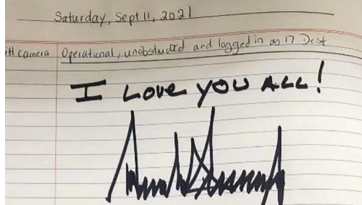 Saturday, Sept 11, 2021
camera Operational, unobstructed and logged in as 17 Dest
I LOVE YOU ALL!